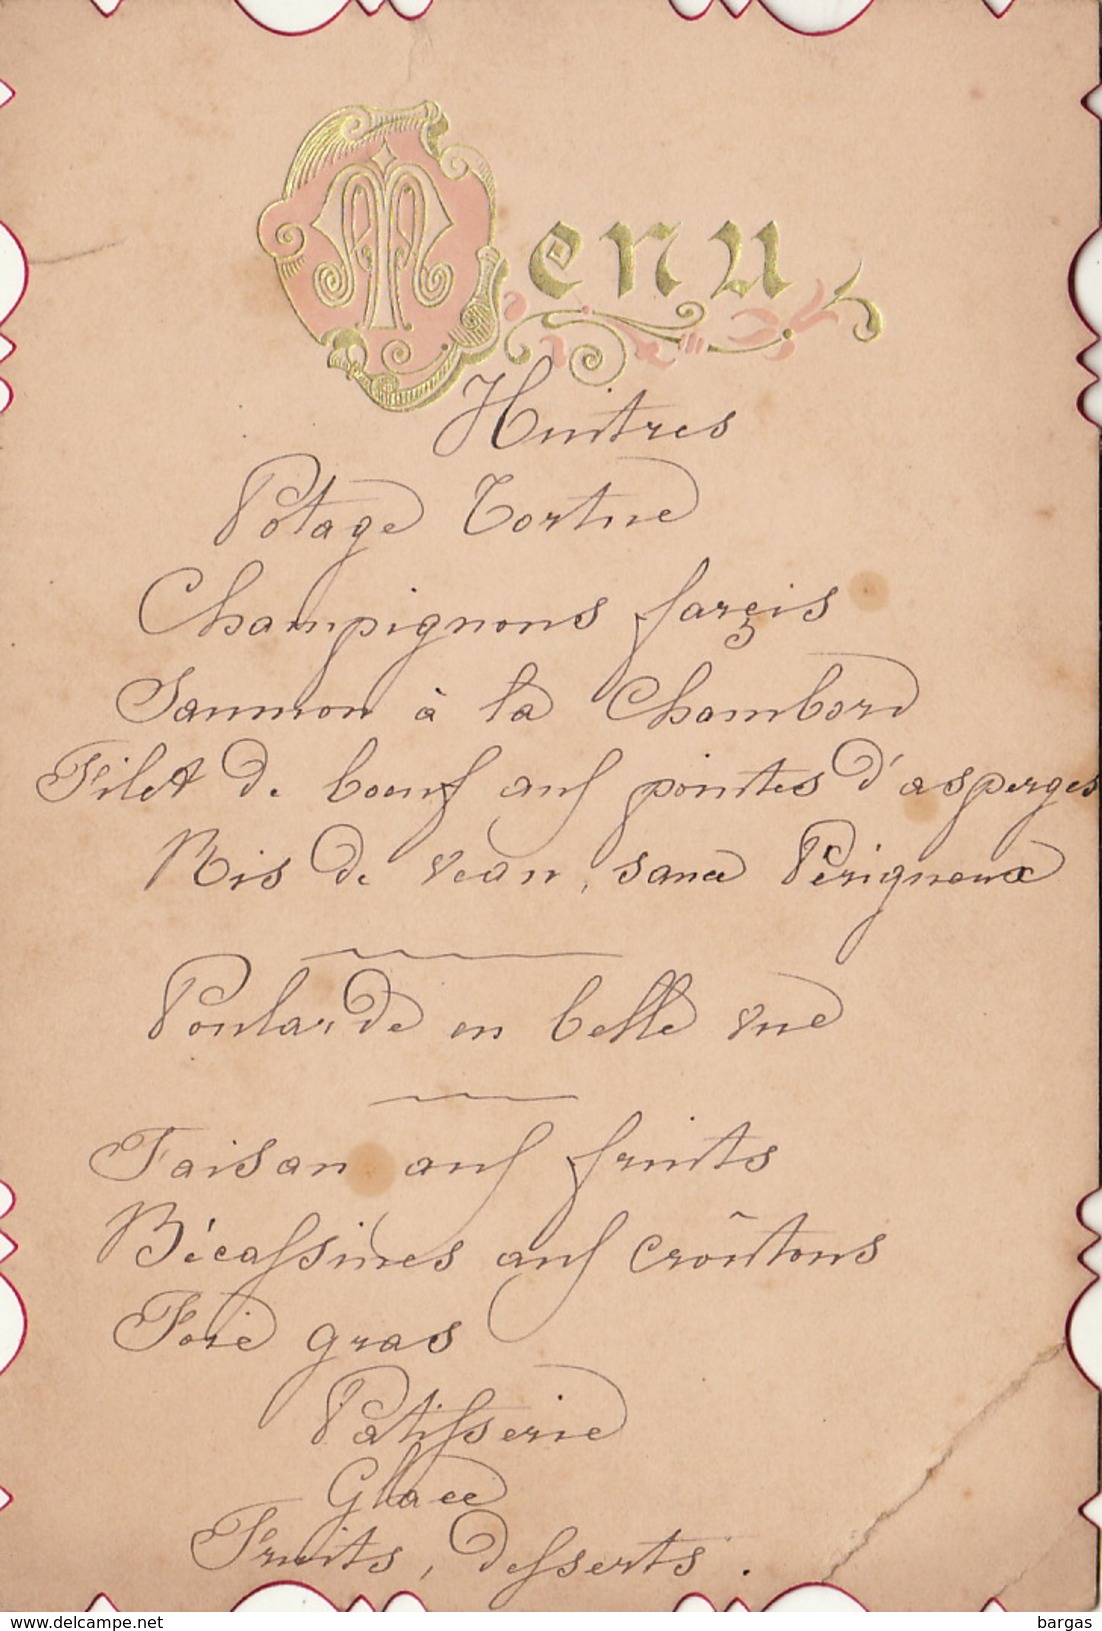 Menu
Huitres
Potage Tortue
Champignons farçis
Saumon à la Chambord
Filet de boeuf aux pointes d'asperges
Ris de veau, sauce Périgueux
Poularde en belle vue
Faisan aux fruits
Bécassines aux croûtons
Foie gras
Patisserie
Glace
Fruits, desserts.
www.delcampe.net
bargas